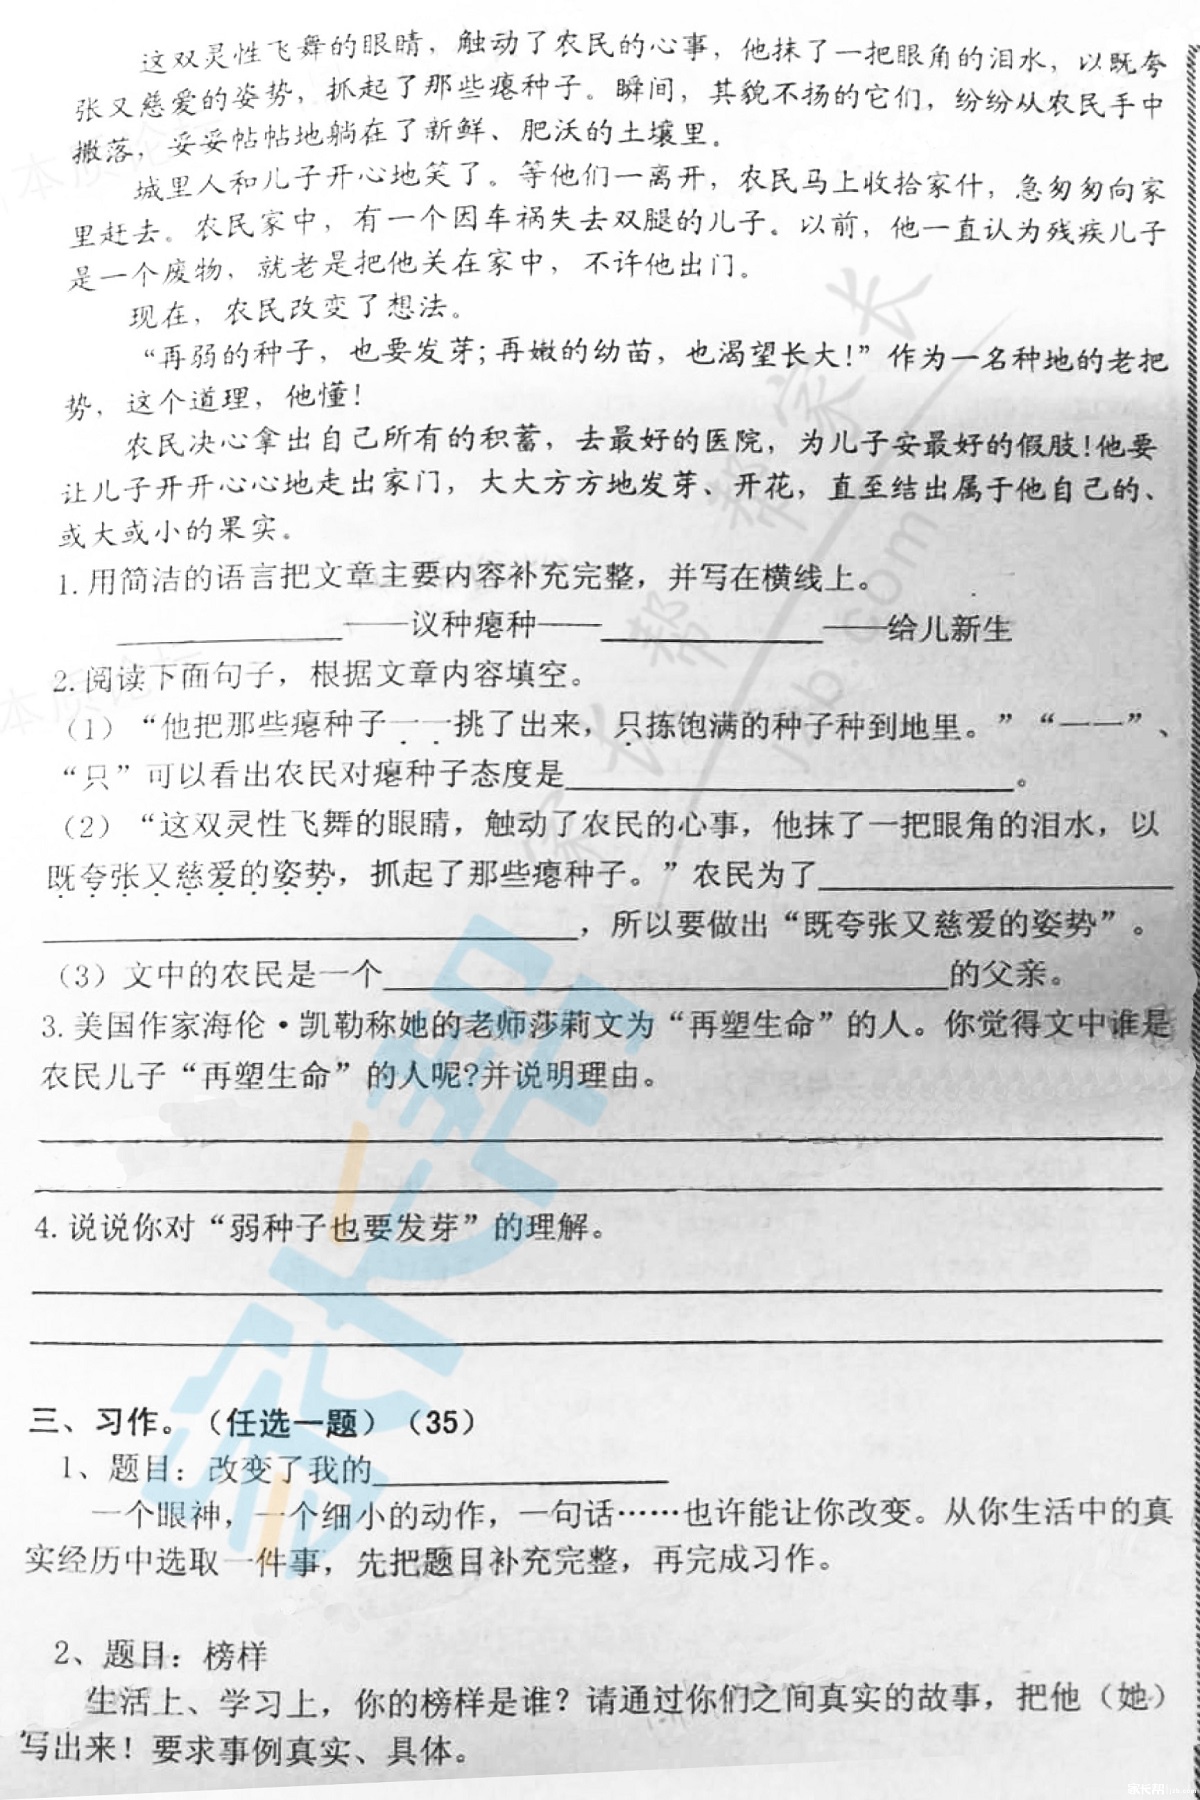 这双灵性飞舞的眼睛，触动了农民的心事，他抹了一把眼角的泪水，以既夸
张又慈爱的姿势，抓起了那些瘪种子。瞬间，其貌不扬的它们，纷纷从农民手中
撒落，妥妥帖帖地躺在了新鲜、肥沃的土壤里。
城里人和儿子开心地笑了。等他们一离开，农民马上收拾家什，急匆匆向家
里赶去。农民家中，有一个因车祸失去双腿的儿子。以前，他一直认为残疾儿子
是一个废物，就老是把他关在家中，不许他出门。
现在，农民改变了想法。
“再弱的种子，也要发芽；再嫩的幼苗，也渴望长大！”作为一名种地的老把
势，这个道理，他懂！
农民决心拿出自己所有的积蓄，去最好的医院，为儿子安最好的假肢！他要
让儿子开开心心地走出家门，大大方方地发芽、开花，直至结出属于他自己的、
或大或小的果实。
1.用简洁的语言把文章主要内容补充完整，并写在横线上。
____________——议种瘪种——____________——给儿新生
2.阅读下面句子，根据文章内容填空。
（1）“他把那些瘪种子一一挑了出来，只拣饱满的种子种到地里。”“一一”、
“只”可以看出农民对瘪种子态度是________________________。
（2）“这双灵性飞舞的眼睛，触动了农民的心事，他抹了一把眼角的泪水，以
既夸张又慈爱的姿势，抓起了那些瘪种子。”农民为了____________________
____________________________，所以要做出“既夸张又慈爱的姿势”。
（3）文中的农民是一个______________________________的父亲。
3.美国作家海伦·凯勒称她的老师莎莉文为“再塑生命”的人。你觉得文中谁是
农民儿子“再塑生命”的人呢？并说明理由。
4.说说你对“弱种子也要发芽”的理解。
三、习作。（任选一题）（35）
1、题目：改变了我的________________
一个眼神，一个细小的动作，一句话……也许能让你改变。从你生活中的真
实经历中选取一件事，先把题目补充完整，再完成习作。
2、题目：榜样
生活上、学习上，你的榜样是谁？请通过你们之间真实的故事，把他（她）
写出来！要求事例真实、具体。